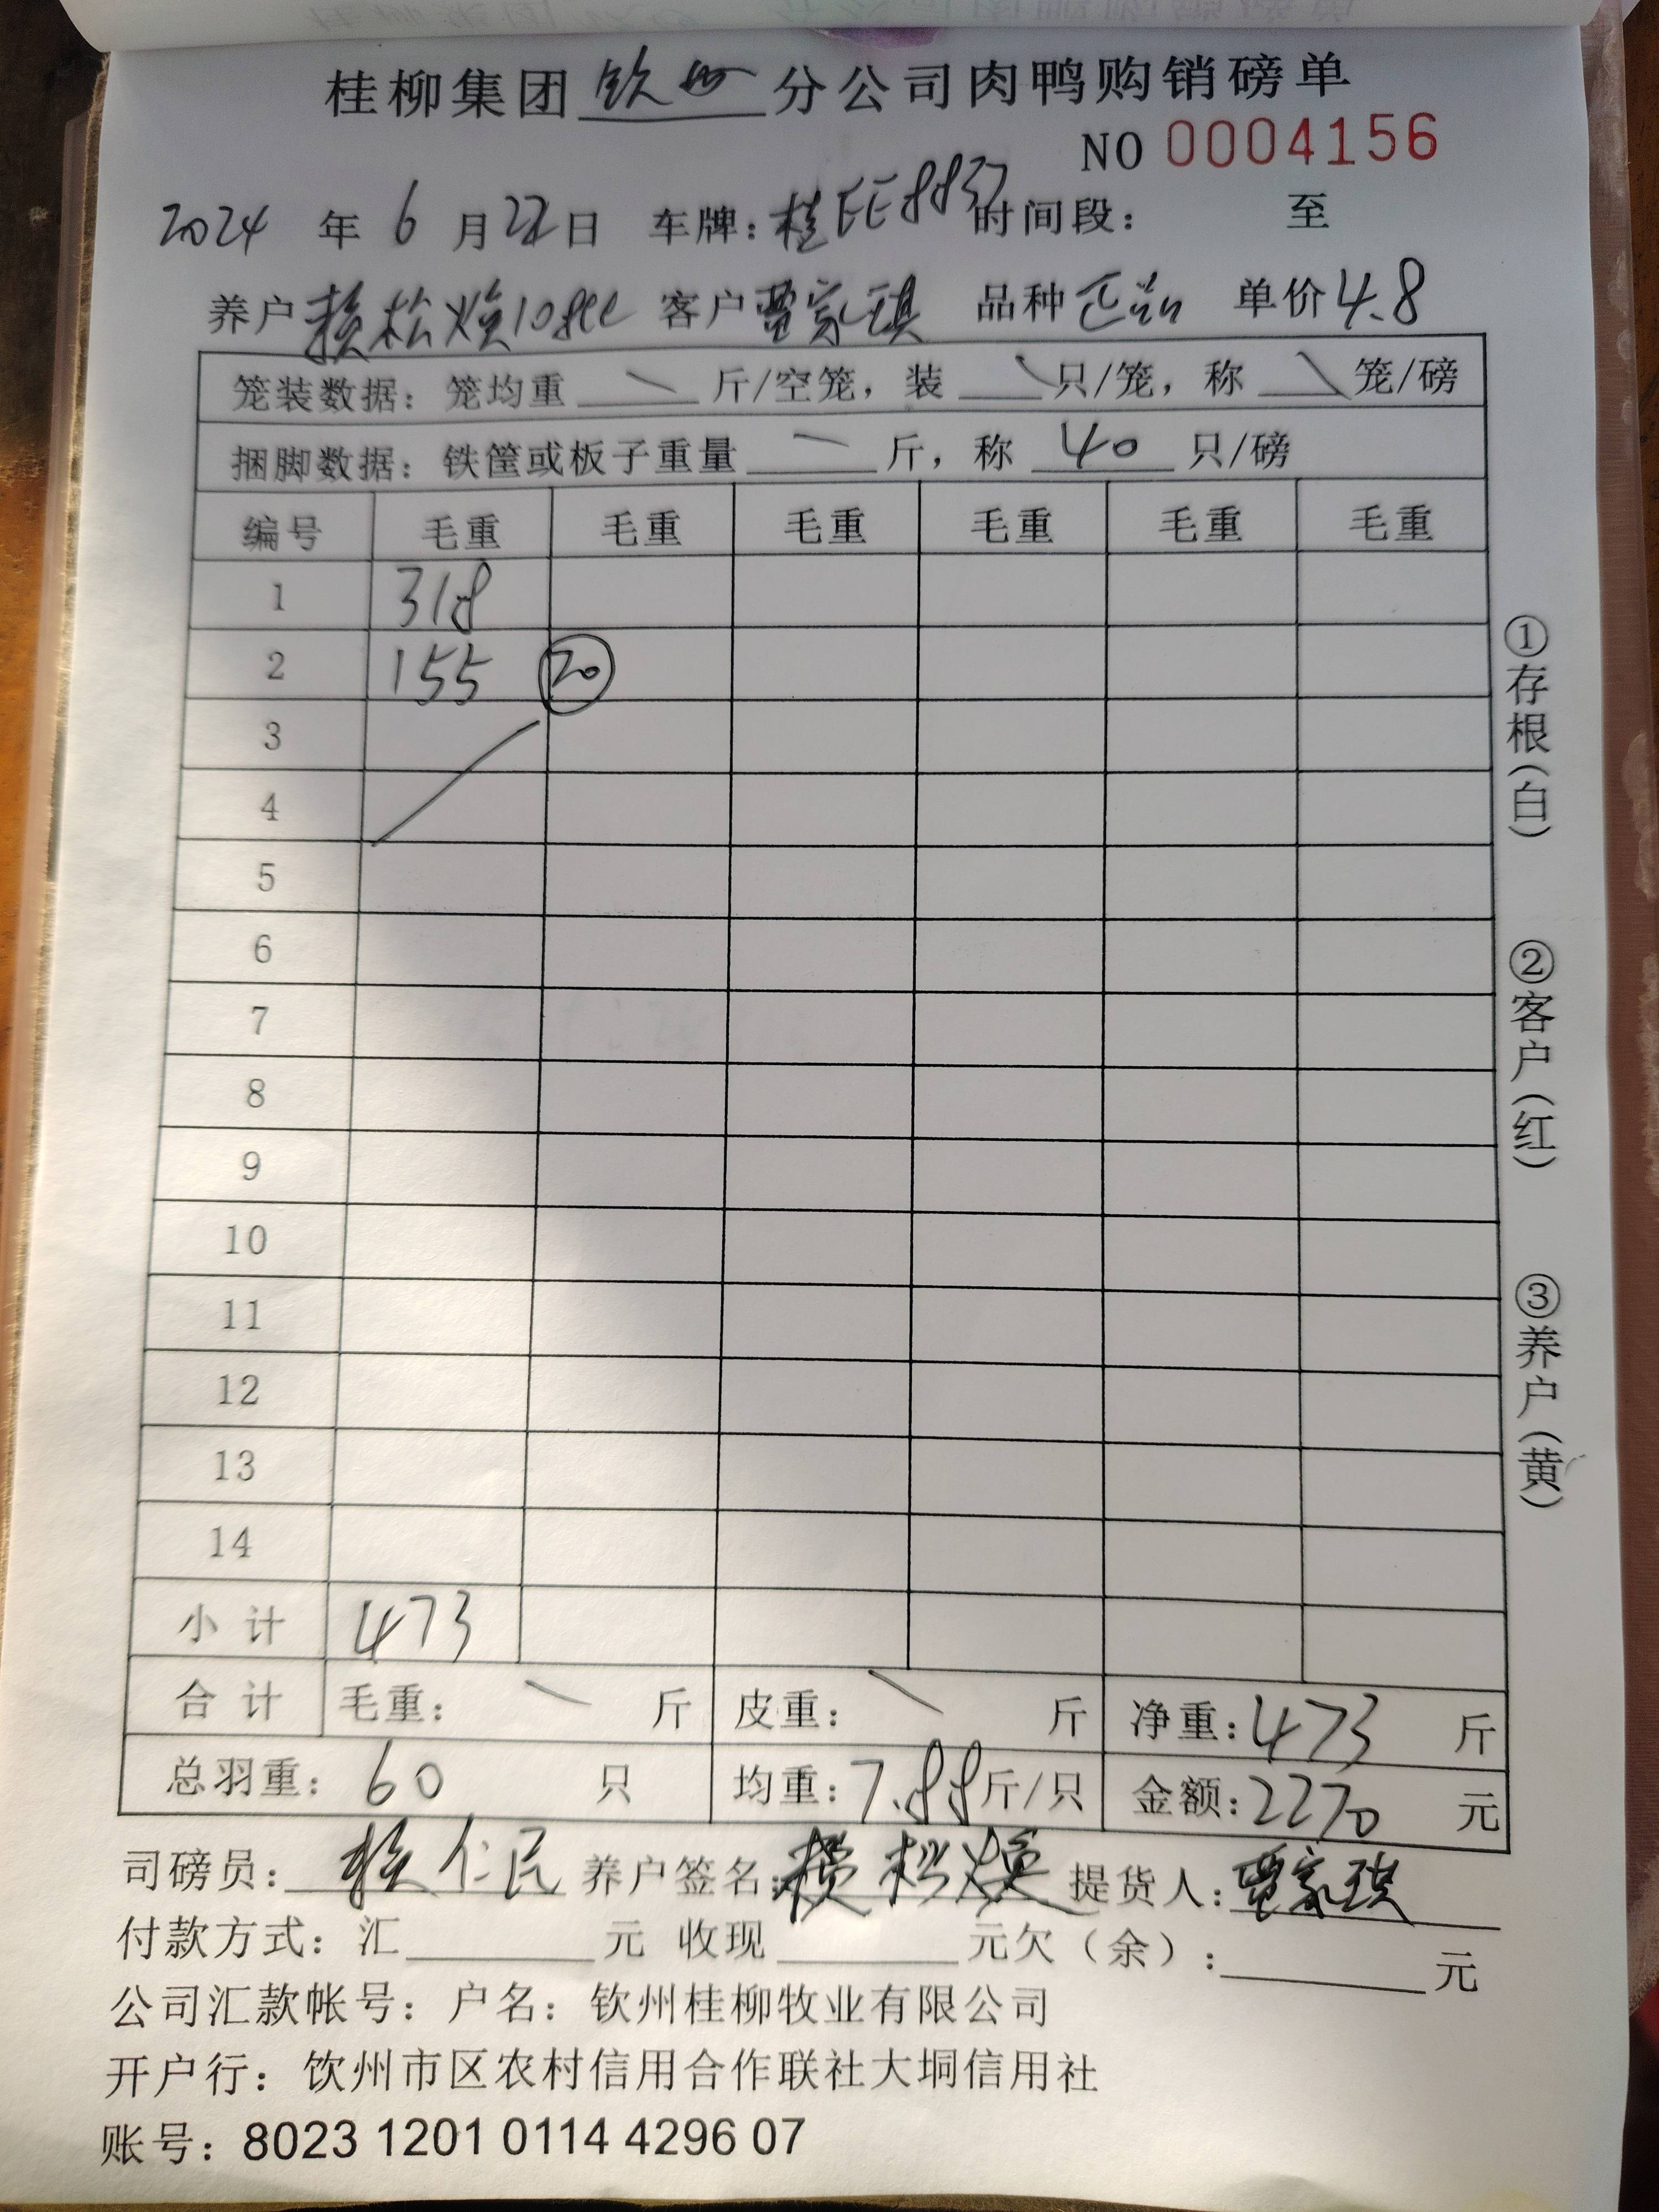 桂柳集团钦州分公司肉鸭购销磅单
NO 0004156
2024 年 6 月 22 日 车牌：桂EE8837 时间段： 至
养户 赖松焕 客户 贾家琪 品种 单价 4.8
笼装数据：笼均重 斤/空笼，装 只/笼，称 笼/磅
捆脚数据：铁筐或板子重量 斤，称 40 只/磅
编号 毛重 毛重 毛重 毛重 毛重 毛重
1 318
2 155 20
3
4
5
6
7
8
9
10
11
12
13
14
小计 473
合计 毛重： 斤 皮重： 斤 净重：473 斤
总羽重：60 只 均重：7.88 斤/只 金额：2270 元
司磅员： 赖仁民 养户签名：赖松焕 提货人：贾家琪
付款方式：汇 元 收现 元欠（余）： 元
公司汇款帐号：户名：钦州桂柳牧业有限公司
开户行：钦州市区农村信用合作联社大垌信用社
账号：8023 1201 0114 4296 07
①存根（白）
②客户（红）
③养户（黄）